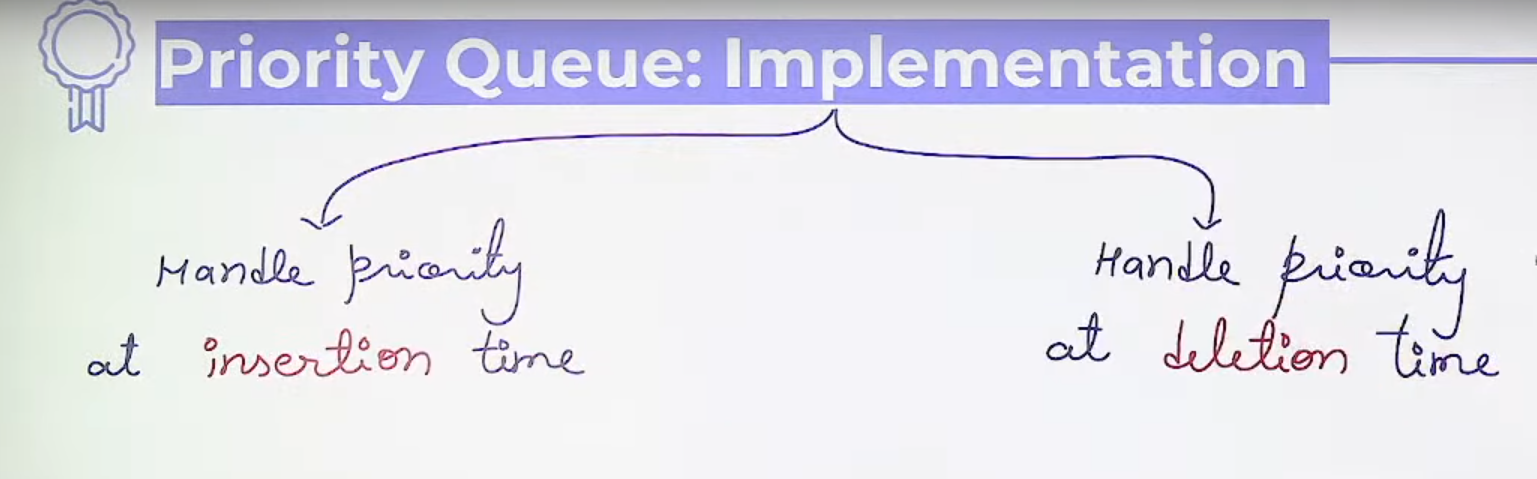 Priority Queue: Implementation
Handle priority
at insertion time
Handle priority
at deletion time